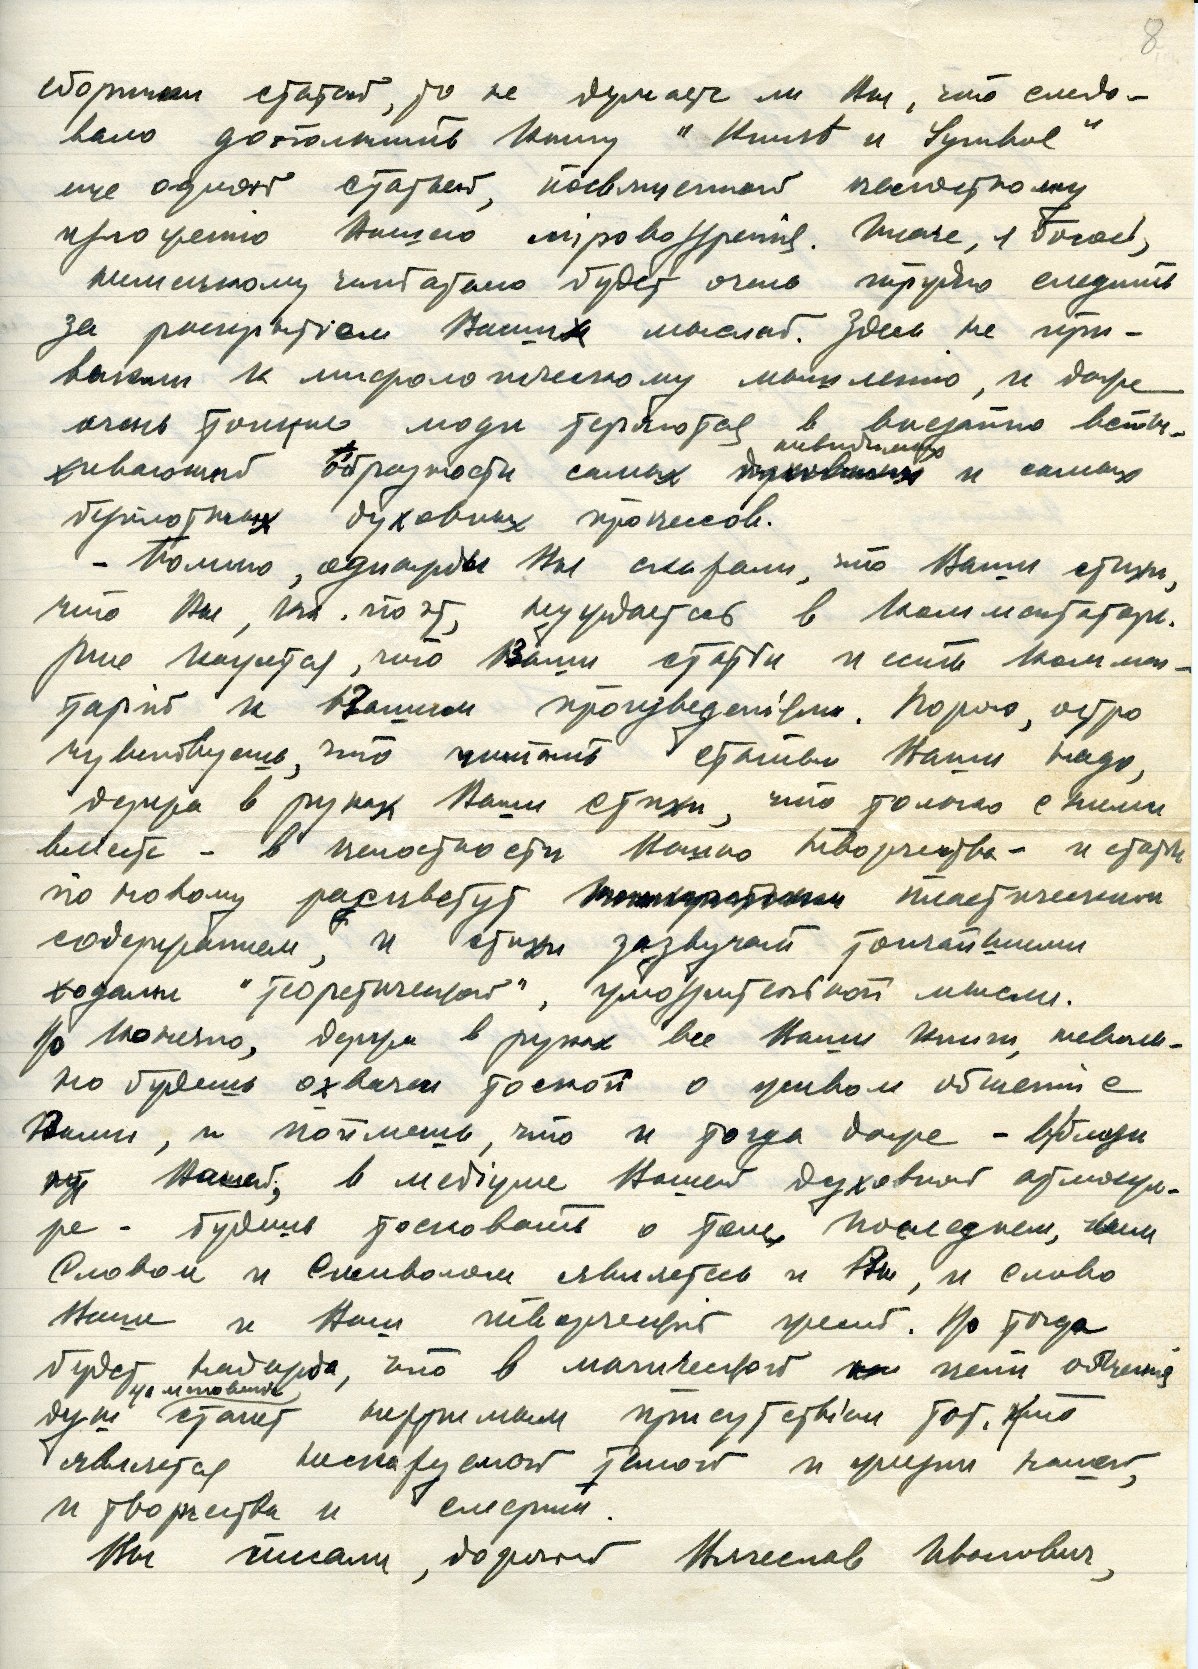 8
сборник статей, то не думаете ли Вы, что следо-
вало дополнить книгу "Kunst и Symbol"
еще одной статьей, посвященной целостному
изложенiю Вашего мiровоззренiя. Иначе, я боюсь,
немецкому читателю будет очень трудно следить
за раскрытiем Ваших мыслей. Здесь не при-
выкли к мифологическому мышленiю, и даже
очень тонкие люди теряются в внезапно вспы-
хивающей образности самых невидимых и самых
безплотных духовных процессов.
- Помню, однажды Вы сказали, что Ваши стихи,
что Вы, как поэт, нуждаетесь в комментаторе.
Мне кажется, что Ваши статьи и есть коммен-
тарiй к Вашим произведенiям. Порою, остро
чувствуешь, что читать статьи Ваши надо,
держа в руках Ваши стихи, что только с ними
вместе - в целостности Вашего творчества - и статьи
по новому расцветут пластическим
содержанием, и стихи зазвучат тончайшими
ходами "теоретической", умозрительной мысли.
Но конечно, держа в руках все Ваши книги, неволь-
но будешь охвачен тоской о живом общенiи с
Вами, и поймешь, что и тогда даже - вблизи
Вашей, в медiуме Вашей духовной атмосфе-
ре - будешь тосковать о том последнем, чьим
Словом и Символом являетесь и Вы, и слово
Ваше и Ваш творческiй жест. Но тогда
будет надежда, что в магической цепи общенiя
душ на мгновенiе станет незримым присутствiем тот, кто
является несказуемой тайной и жизни нашей,
и творчества и смерти.
Вы писали, дорогой Вячеслав Иванович,